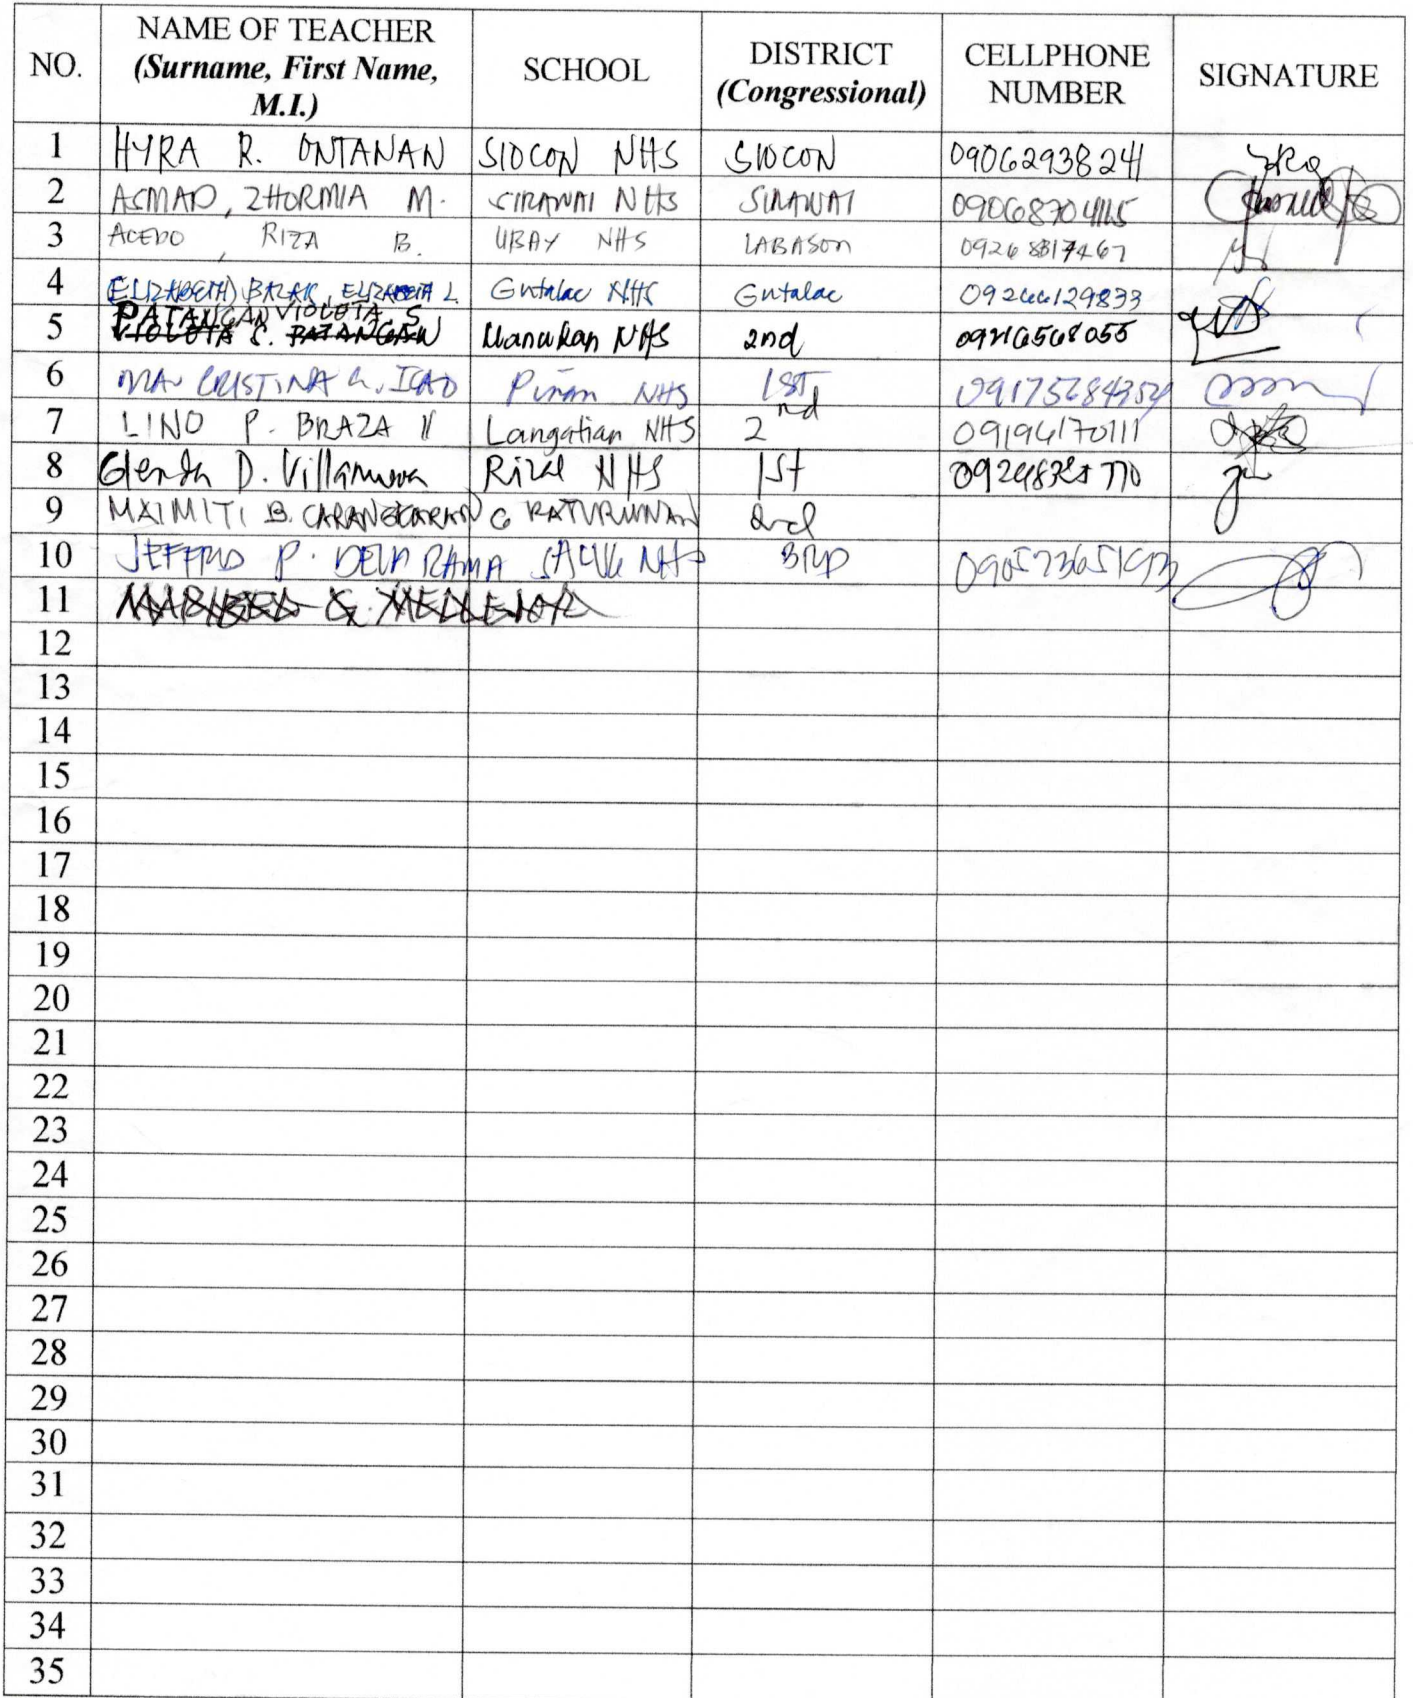 NO. NAME OF TEACHER (Surname, First Name, M.I.) SCHOOL DISTRICT (Congressional) CELLPHONE NUMBER SIGNATURE
1 HYRA R. ONTANAN SIOCON NHS SIOCON 09062938241
2 ASMAD, ZHORMIA M. SIRAWAI NHS SIRAWAI 09068704115
3 ACEDO, RIZA B. UBAY NHS LABASON 09268817467
4 BALAN, ELIZABETH L. Gutalac NHS Gutalac 09266129833
5 PATANGAN VIOLETA S. Manukan NHS 2nd 09216568055
6 MA. CRISTINA G. ICAO Piñan NHS 1ST 09175684354
7 LINO P. BRAZA II Langatian NHS 2nd 09194170111
8 Glenda D. Villanueva Rizal NHS 1st
9 MAIMITI B. 2nd
10 P. DELA RAMA NHS
11
12
13
14
15
16
17
18
19
20
21
22
23
24
25
26
27
28
29
30
31
32
33
34
35